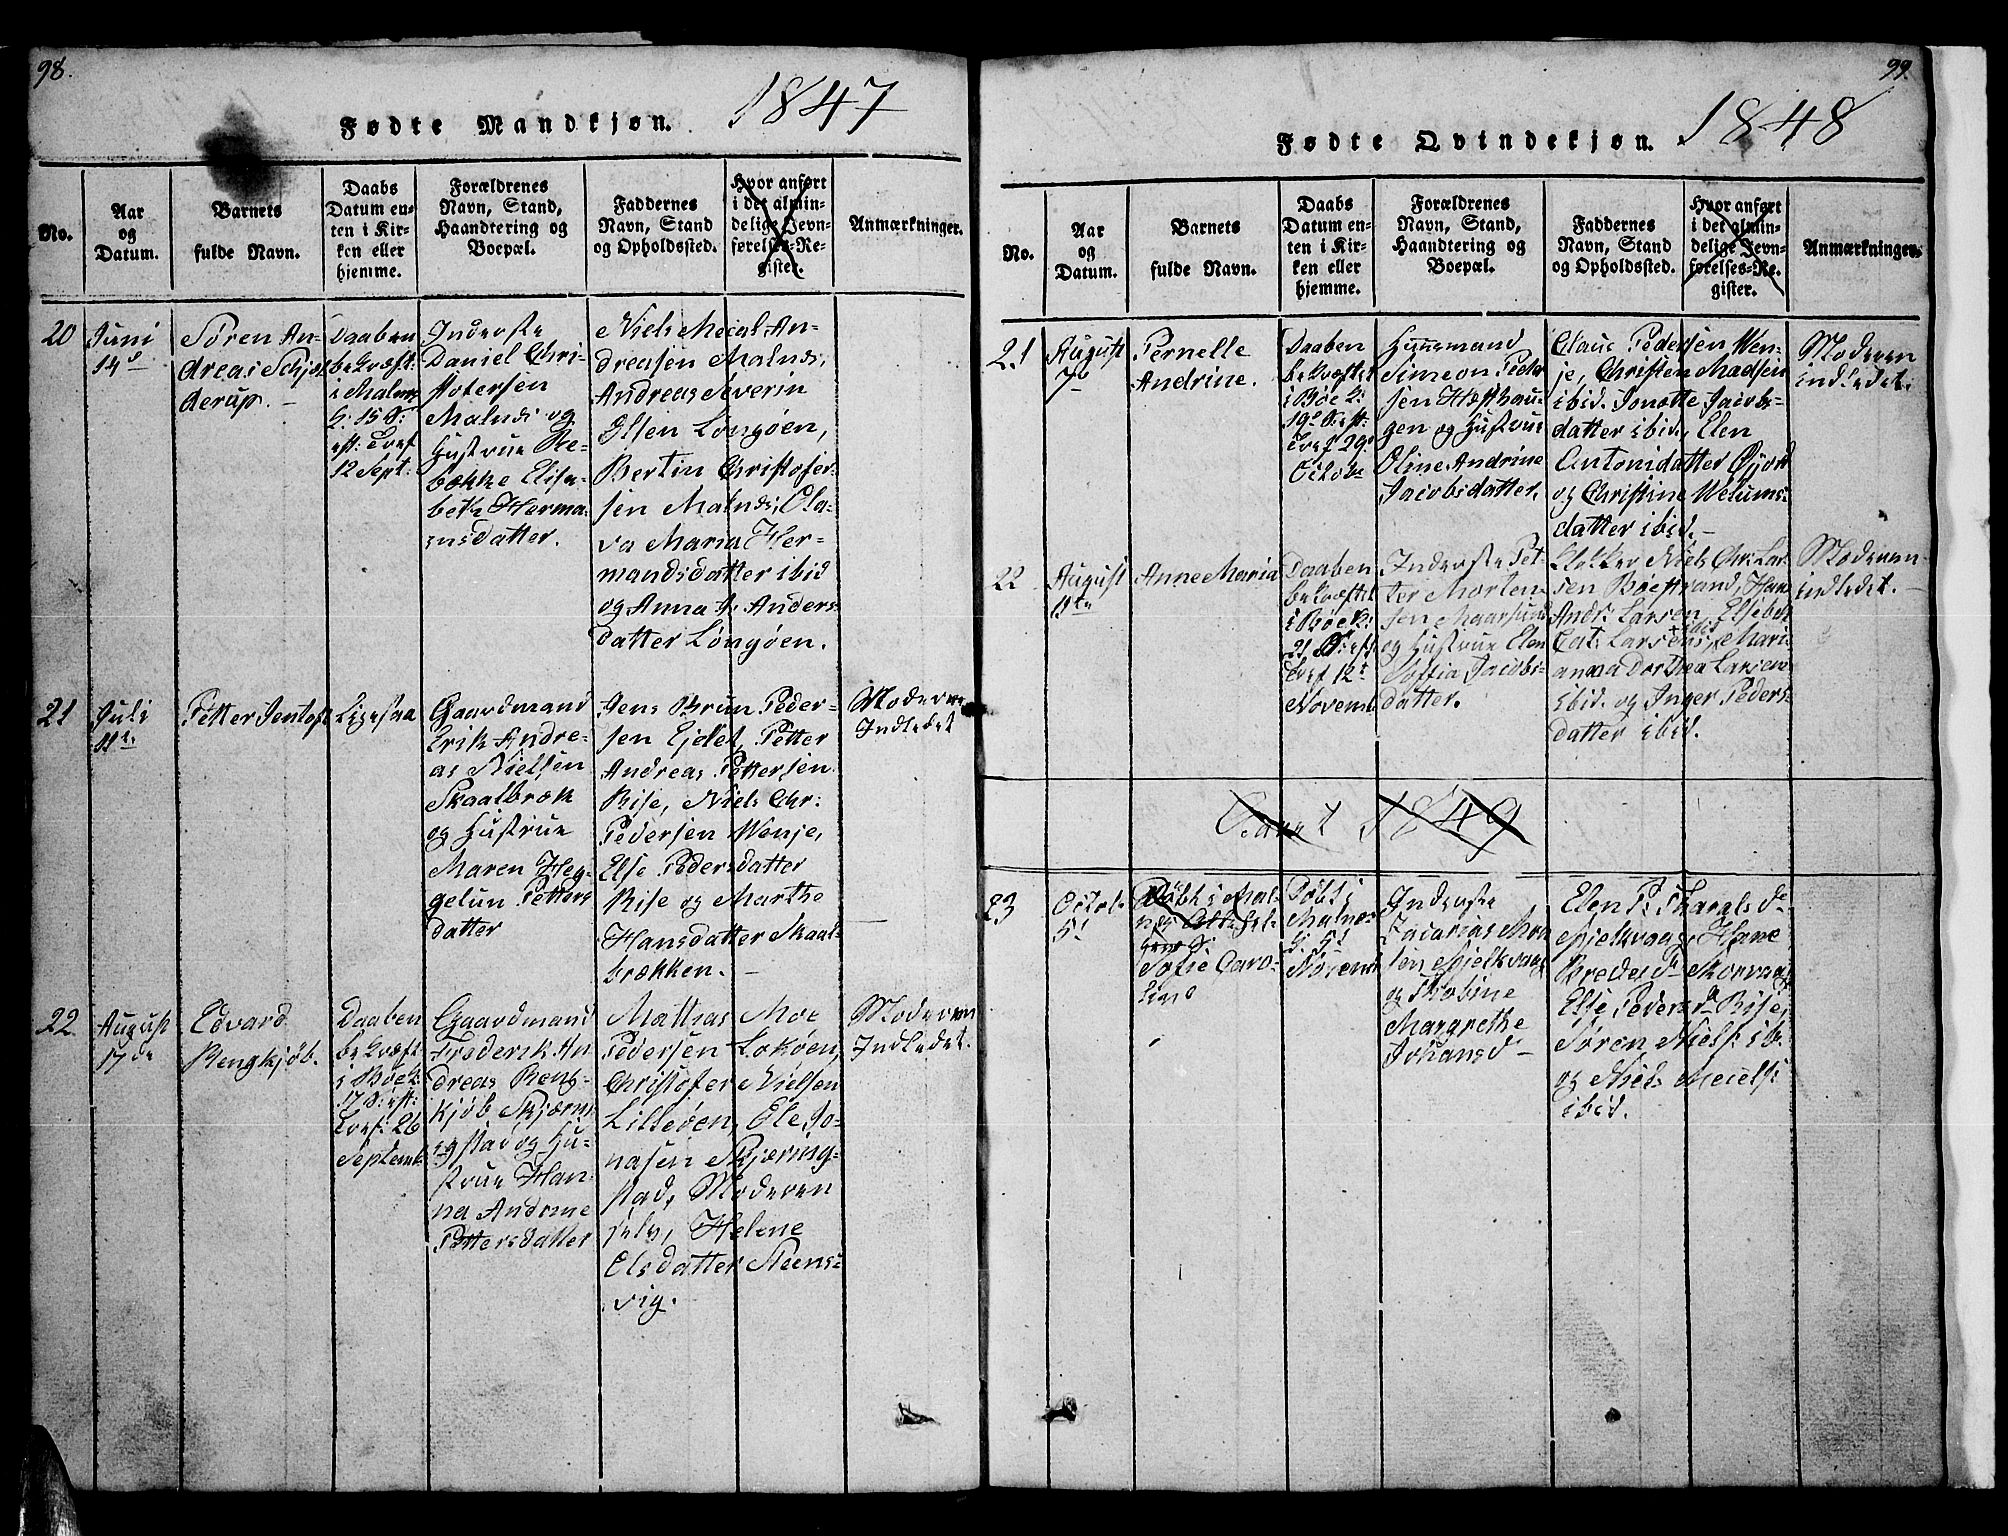 98.
Fødte Mandkjøn. 1847
No.
Aar
og
Datum.
Barnets
fulde Navn.
Daabs
Datum en-
ten i Kir-
ken eller
hjemme.
Forældrenes
Navn, Stand,
Haandtering og
Boepæl.
Faddernes
Navn, Stand
og Opholdssted.
Hvor anført
i det almin-
delige Jevn-
førelses-Re-
gister.
Anmærkninger.
20
Juni
14d
Søren An-
dreas Schjel
derup. -
Daaben
bekræft:
i Malnes
S:
eft: Tref
12 Sept:
Inderste
Daniel Chri-
stofersen
Malnes og
Hustrue Re-
bække Elisa-
beth Herma-
nsdatter.
Niels Meial An-
dreasen Malnes,
Andreas Severin
Olsen Longøen,
Bertin Christofer-
sen Malnes, Ola-
va Maria Her-
mandsdatter ibid
og Anna Anders-
datter Longøen.
21
Juli
11te
Petter Jentoft
Ligesaa
Gaardmand
Erik Andre-
as Nielsen
Skaalbræk
og Hustrue
Maren Heg-
gelun Petters
datter
Jens Brun Peder-
sen Ejdet, Petter
Andreas Pettersen
Rise, Niels Chr:
Pedersen Wenje,
Else Pedersdatter
Rise og Marthe
Hansdatter Skaal-
brækken. -
Moderen
Indledet
22
August
17de
Edvard
Rengkjøb.
Daaben
bekræft
i Bøe k:
17 S: eft:
Tref: 26
Septemb:
Gaardmand
Frederik An
dreas Reng-
kjøb Skjærin
gstad og Hu-
strue Han-
na Andrine
Pettersdatter
Mathias Moe
Pedersen Lokøen,
Christofer Nielsen
Lilleøen, Ole Jo-
nasen Skjæring-
stad, Moderen
selv, Helene
Olsdatter Steens-
vig.
Moderen
Indledet.
99.
Fødte Qvindekjøn. 1848
No.
Aar
og
Datum.
Barnets
fulde Navn.
Daabs
Datum en-
ten i Kir-
ken eller
hjemme.
Forældrenes
Navn, Stand,
Haandtering og
Boepæl.
Faddernes
Navn, Stand
og Opholdssted.
Hvor anført
i det almin-
delige Jevn-
førelses-Re-
gister.
Anmærkninger.
21
August
7de
Pernelle
Andrine.
Daaben
bekræftet
i Bøe k:
19de S: eft:
Tref 29de
Octob
Huusmand
Simeon Peder
sen Hæsthau-
gen og Hustrue
Oline Andrine
Jacobsdatter.
Claus Pedersen Wen-
je, Christen Madsen
ibid. Jonette Jacobs-
datter ibid, Elen
Antonidatter Øjord
og Christine Welums-
datter ibid. -
Moderen
indledet.
22
August
11te
Anne Maria
Daaben
bekræftet
i Bøe k:
21 S: eft
Tref 12te
Novemb
Inderste Pet-
ter Morten-
sen Maarsund
og Hustrue Elen
Soffia Jacobs-
datter.
Klokker Niels Chr: Lar-
sen Bøestrand, Hans
Andr: Larsen, Elsebet
Cat: Larsens, Mari-
anna Dorthea Larsen
ibid. og Inger Peders-
datter ibid.
Moderen
indledet. -
Aaret 1849
23
Octob:
5te
Sofie Caro-
line
Døbt i
Malnes
K: 5te
Novemb
Inderste
Zacarias Mon
sen Spjelkvaag
og Jakobine
Margrethe
Johansd -
Elen P: Tharalsd
Spjelkvaag, Hane
Bredesd Skorvaag
Else Pedersd Rise,
Søren Niels: ib.
og Niels Meiels:
ibid.